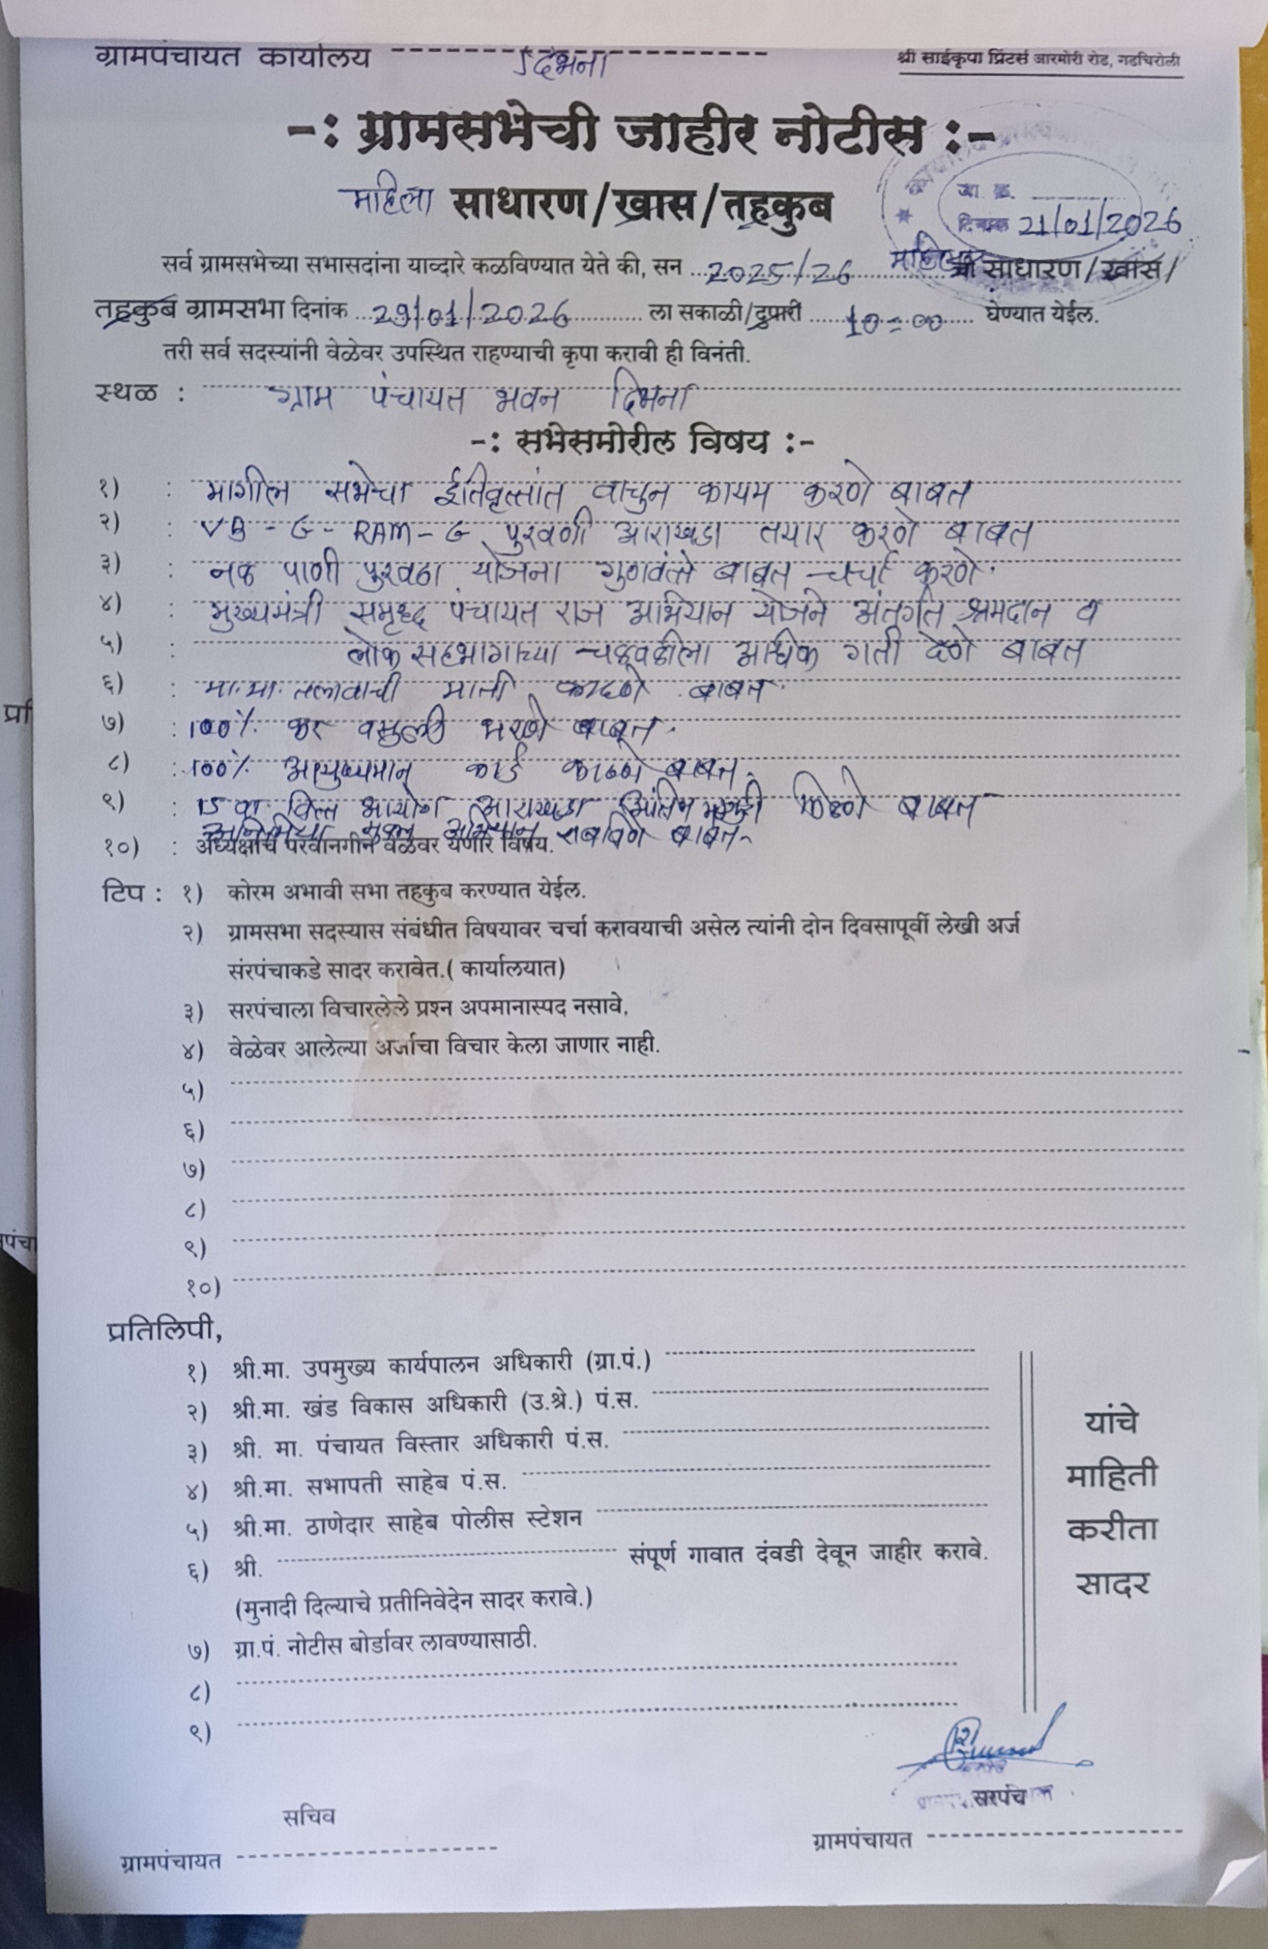 ग्रामपंचायत कार्यालय दिभना
श्री साईकृपा प्रिंटर्स आरमोरी रोड, गडचिरोली
-: ग्रामसभेची जाहीर नोटीस :-
महिला साधारण/खास/तहकुब
जा. क्र.
दिनांक 21/01/2026
सर्व ग्रामसभेच्या सभासदांना याव्दारे कळविण्यात येते की, सन 2025/26 महिला साधारण/खास/
तहकुब ग्रामसभा दिनांक 29/01/2026 ला सकाळी/दुपारी 10=00 घेण्यात येईल.
तरी सर्व सदस्यांनी वेळेवर उपस्थित राहण्याची कृपा करावी ही विनंती.
स्थळ : ग्राम पंचायत भवन दिभना
-: सभेसमोरील विषय :-
१) : मागील सभेचा ईतिवृत्तांत वाचुन कायम करणे बाबत
२) : VB-G-RAM-G पुरवणी आराखडा तयार करणे बाबत
३) : नळ पाणी पुरवठा योजना गुणवंत्ते बाबत चर्चा करणे.
४) : मुख्यमंत्री समृध्द पंचायत राज अभियान योजने अंतर्गत श्रमदान व
५) : लोक सहभागाच्या चळवळीला अधिक गती देणे बाबत
६) : मा.मा. तलावाची माती काढणे बाबत.
७) : 100% कर वसुली भरणे बाबत.
८) : 100% आयुष्यमान कार्ड काढणे बाबत.
९) : 15 वा वित्त आयोग आराखडा अंतिम मंजुरी बाबत
मुक्त अभियान राबविणे बाबत.
१०) : अध्यक्षांचे परवानगीने वेळेवर येणारे विषय.
टिप : १) कोरम अभावी सभा तहकुब करण्यात येईल.
२) ग्रामसभा सदस्यास संबंधीत विषयावर चर्चा करावयाची असेल त्यांनी दोन दिवसापूर्वी लेखी अर्ज
संरपंचाकडे सादर करावेत.( कार्यालयात)
३) सरपंचाला विचारलेले प्रश्न अपमानास्पद नसावे.
४) वेळेवर आलेल्या अर्जाचा विचार केला जाणार नाही.
५)
६)
७)
८)
९)
१०)
प्रतिलिपी,
१) श्री.मा. उपमुख्य कार्यपालन अधिकारी (ग्रा.पं.)
२) श्री.मा. खंड विकास अधिकारी (उ.श्रे.) पं.स.
३) श्री. मा. पंचायत विस्तार अधिकारी पं.स.
४) श्री.मा. सभापती साहेब पं.स.
५) श्री.मा. ठाणेदार साहेब पोलीस स्टेशन
६) श्री. संपूर्ण गावात दंवडी देवून जाहीर करावे.
(मुनादी दिल्याचे प्रतीनिवेदेन सादर करावे.)
७) ग्रा.पं. नोटीस बोर्डावर लावण्यासाठी.
८)
९)
यांचे
माहिती
करीता
सादर
सचिव
ग्रामपंचायत
सरपंच
ग्रामपंचायत